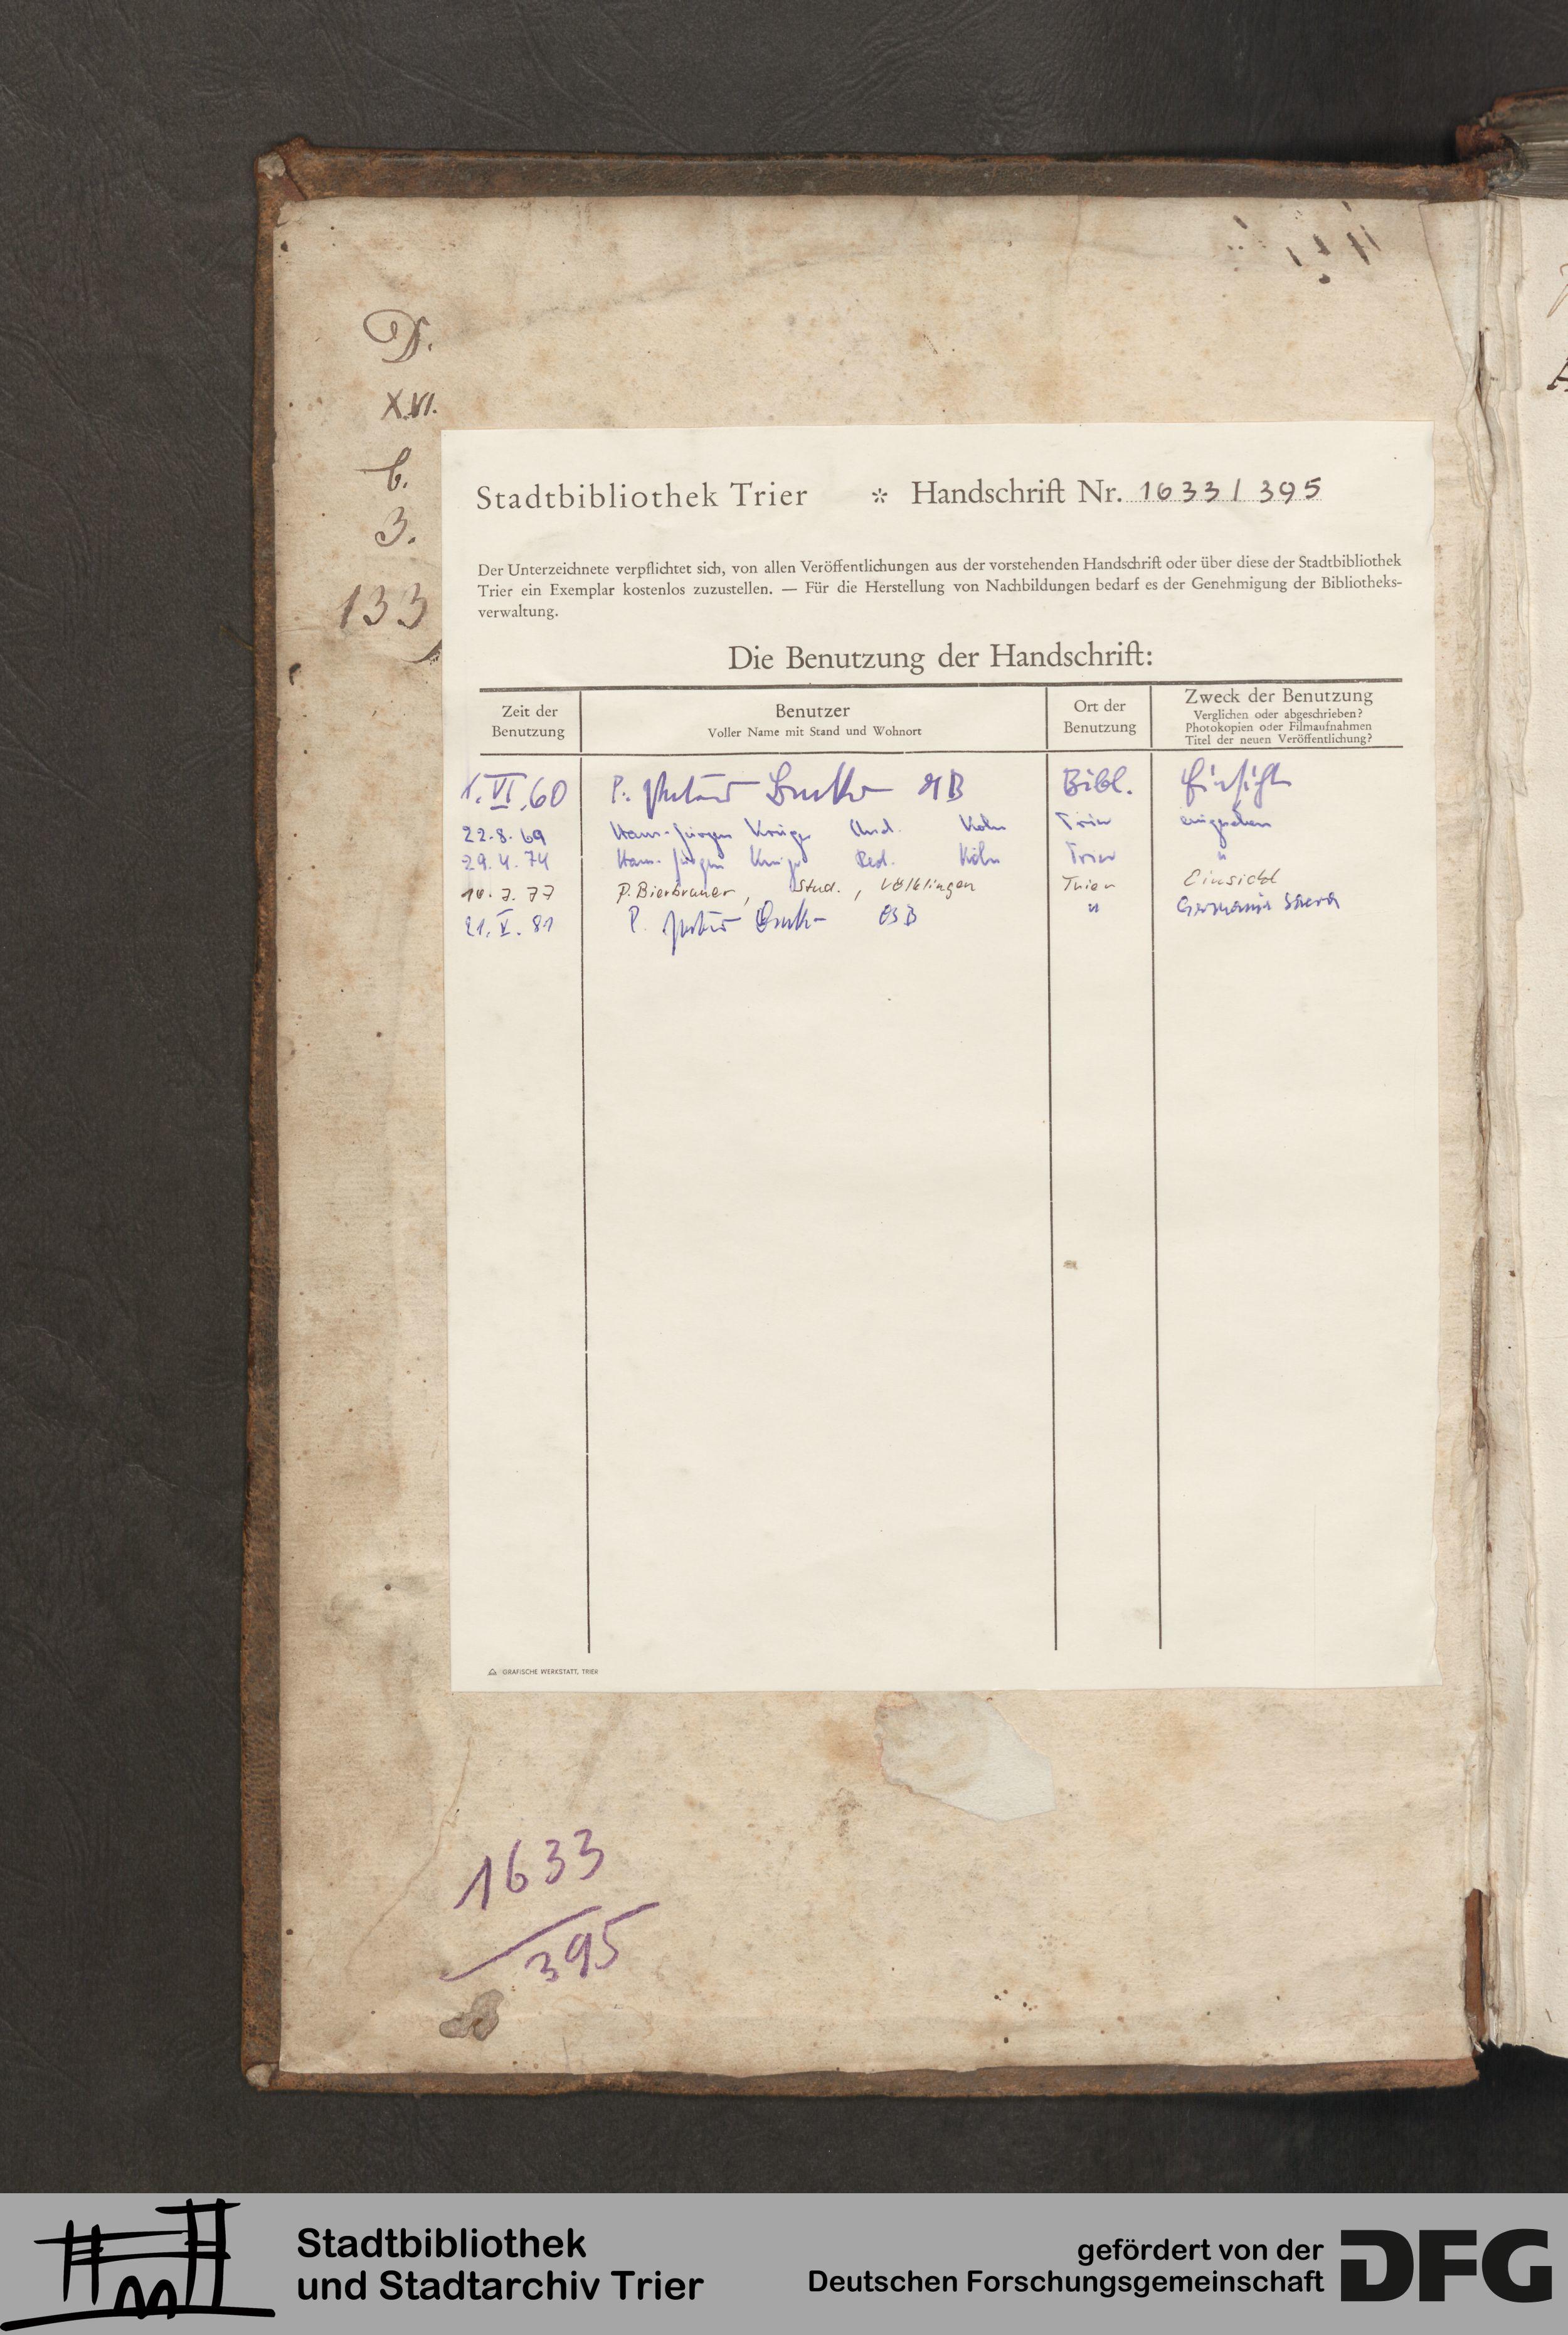 D.
XVI.
b.
3.
133
Stadtbibliothek Trier * Handschrift Nr. 1633 / 395
Der Unterzeichnete verpflichtet sich, von allen Veröffentlichungen aus der vorstehenden Handschrift oder über diese der Stadtbibliothek
Trier ein Exemplar kostenlos zuzustellen. — Für die Herstellung von Nachbildungen bedarf es der Genehmigung der Bibliotheks-
verwaltung.
Die Benutzung der Handschrift:
Zeit der Benutzung
Benutzer
Voller Name mit Stand und Wohnort
Ort der Benutzung
Zweck der Benutzung
Verglichen oder abgeschrieben?
Photokopien oder Filmaufnahmen
Titel der neuen Veröffentlichung?
1. VI. 60 P. Bibl. Einsicht
22.8.69 Hans-Jürgen Krüger Köln Trier eingesehen
29.4.74 Hans-Jürgen Krüger Köln Trier "
14.7.77 P. Bierbrauer, Stud., Völklingen Trier Einsicht
21. V. 81 P. OSB " Germania Sacra
GRAFISCHE WERKSTATT, TRIER
1633
395
Stadtbibliothek
und Stadtarchiv Trier
gefördert von der
Deutschen Forschungsgemeinschaft
DFG